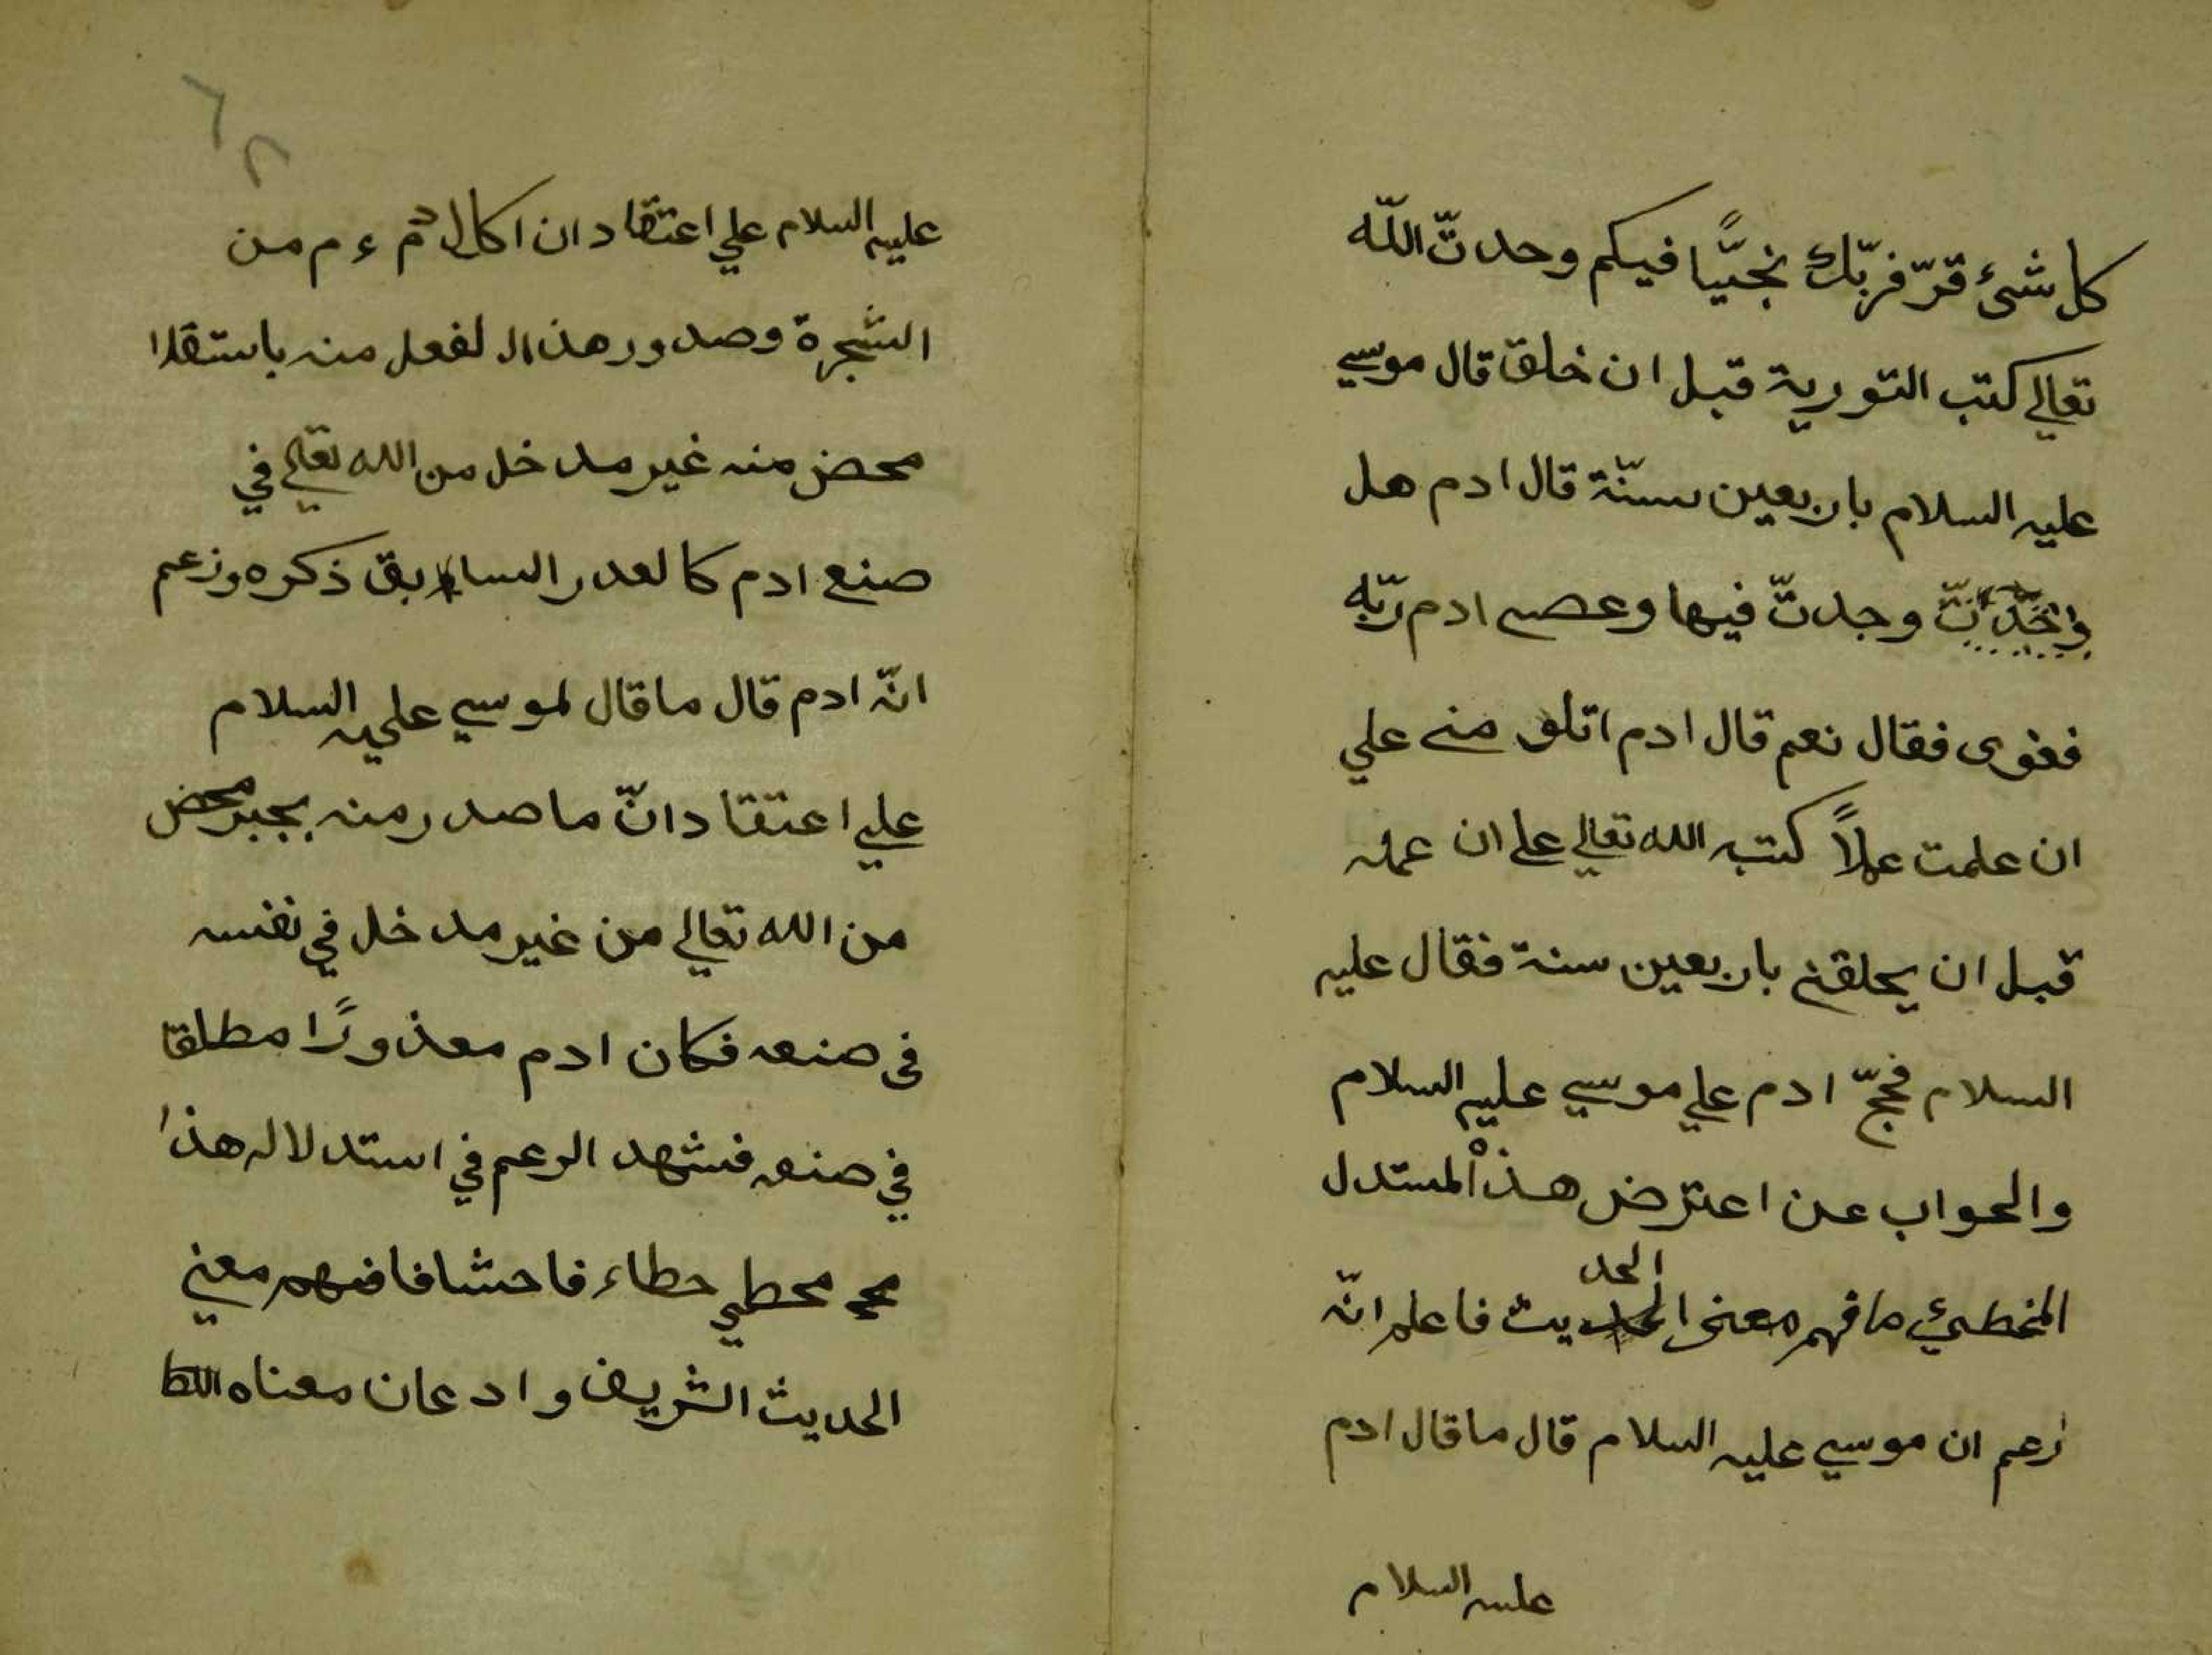 كل شئ قرّ فربّك نجيًّا فيكم وحدتّ اللّه
تعالي كتب التورية قبل ان خلق قال موسي
عليه السلام باربعين سنّة قال ادم هل
وجدتّ فيها وعصى ادم ربّه
فغوى فقال نعم قال ادم اتلو منى علي
ان علمت عملاً كتبه الله تعالي علي ان عمله
قبل ان يحلقنى باربعين سنة فقال عليه
السلام فحجّ ادم علي موسي عليه السلام
والحواب عن اعترض هذا المستدل
المخطئ ما فهم معنى الحديث فاعلم انّه
زعم ان موسي عليه السلام قال ما قال ادم
عليه السلام
٦٢
عليه السلام علي اعتقاد ان اكل ادم ء م من
الشجرة وصدور هذا الفعل منه باستقلا
محض منه غير مدخل من الله تعالي في
صنع ادم كالعدر السابق ذكره وزعم
انّه ادم قال ما قال لموسي عليه السلام
علي اعتقاد انّ ما صدر منه بجبر محض
من الله تعالي من غير مدخل في نفسه
فى صنعه فكان ادم معذورًا مطلقا
في صنعه فشهد الرعم في استدلاله هذا
محطي حطاء فاحشا فافهم معني
الحديث الشريف وادعان معناه